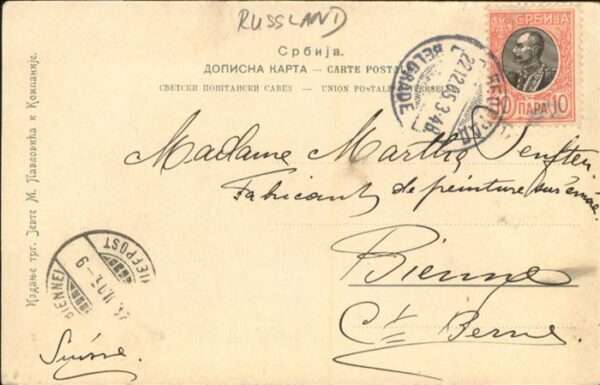 RUSSLAND
Србија.
ДОПИСНА КАРТА — CARTE POSTALE
СВЕТСКИ ПОШТАНСКИ САВЕЗ — UNION POSTALE UNIVERSELLE
СРБИЈА
10 ПАРА 10
BELGRADE
22 12 05 3-4
Madame Martha
Fabricant de peinture sur émail.
Bienne
Ct Berne
Suisne.
BIENNE
BRIEFPOST
Издање трг. Јевте М. Павловића и Компаније.